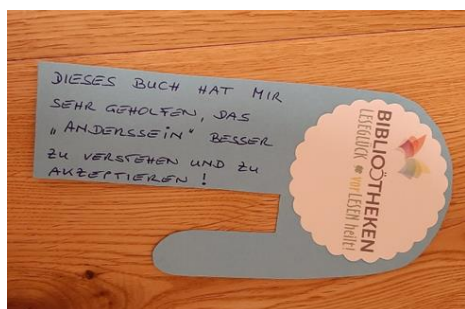 DIESES BUCH HAT MIR
SEHR GEHOLFEN, DAS
„ANDERSSEIN“ BESSER
ZU VERSTEHEN UND ZU
AKZEPTIEREN !
BIBLIOTHEKEN
LESEGLÜCK # vorLESEN heilt!